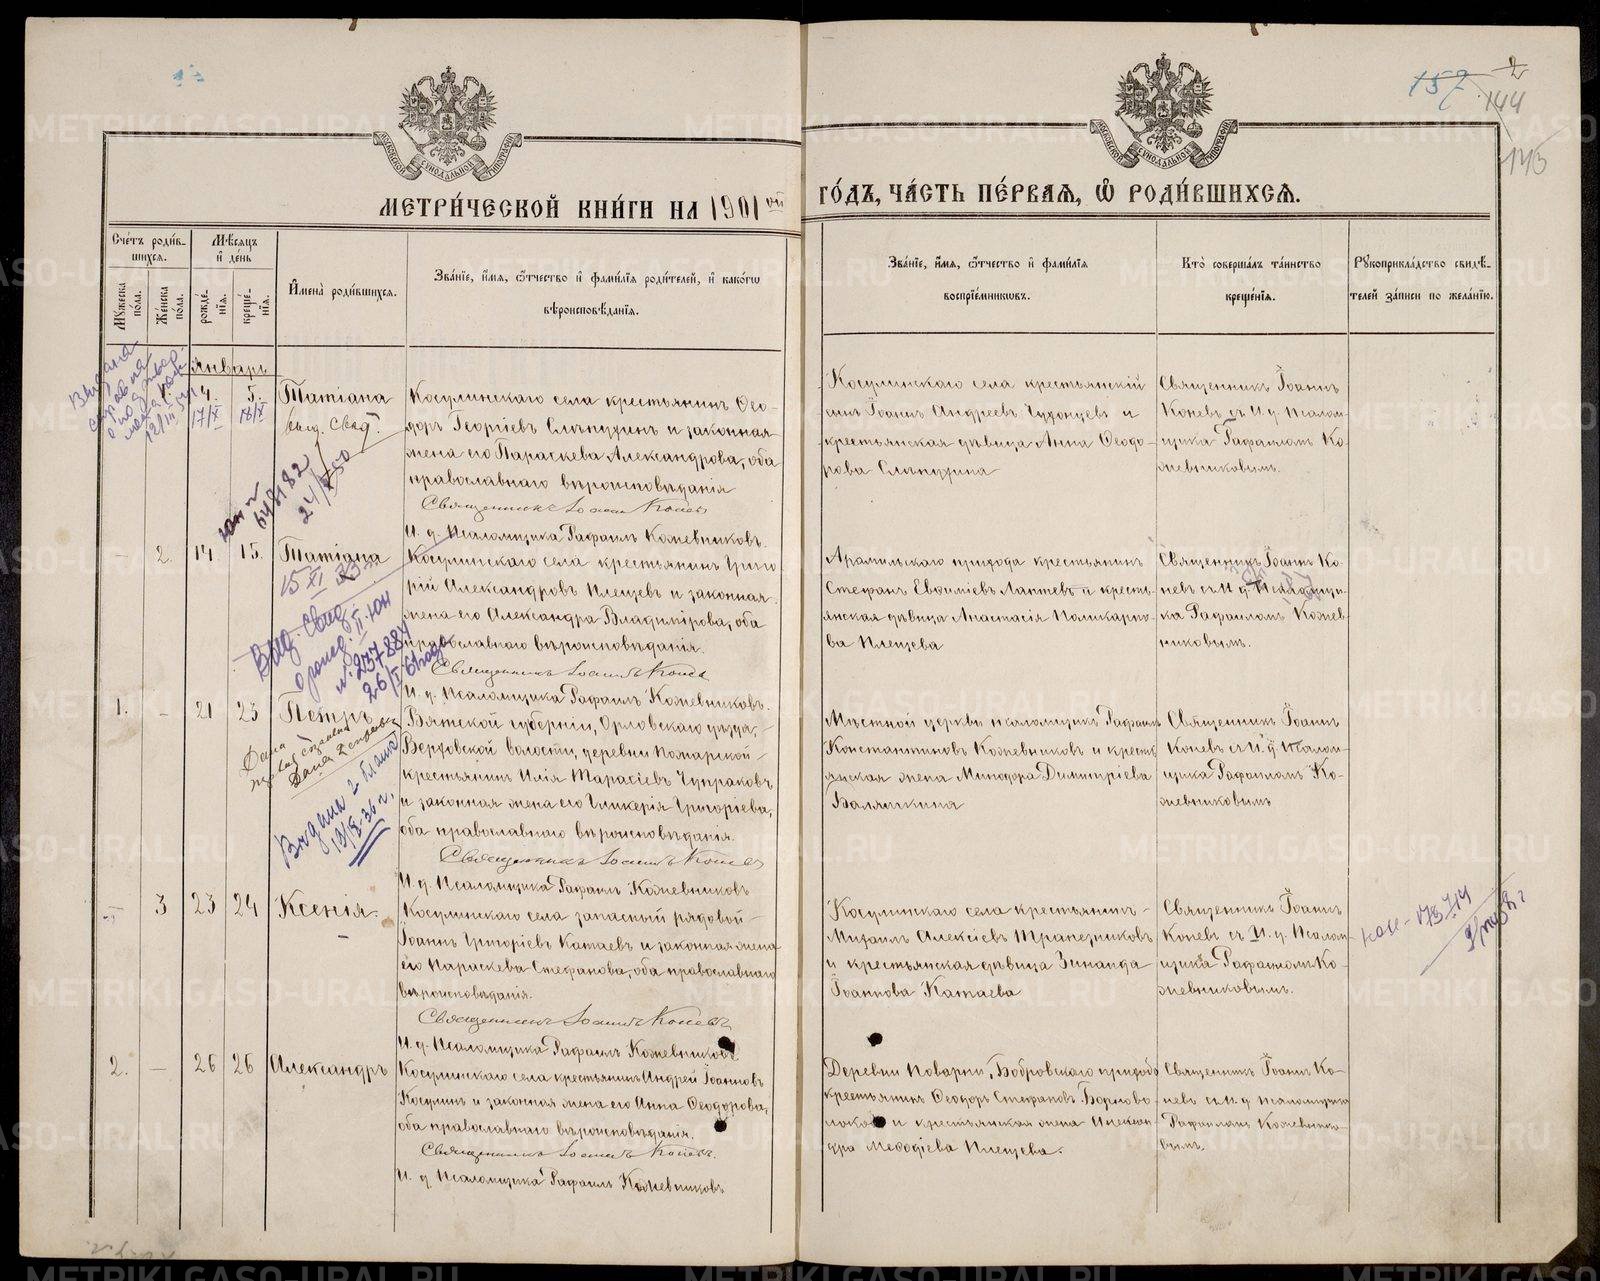 157 2
144
143
МЕТРИ́ЧЕСКОЙ КНИ́ГИ НА 1901 ый ГО́ДЪ, ЧА́СТЬ ПЕ́РВАЯ, Ѡ҆ РОДИ́ВШИХСЯ.
Сче́тъ роди́в-
шихся.
Мѣ́сяцъ
и҆ де́нь
Мꙋ́жеска по́ла.
Же́нска по́ла.
рожде́нїя.
креще́нїя.
И҆мена̀ роди́вшихся.
Зва́нїе, и҆́мя, ѻ҆́тчество и҆ фами́лїя роди́телей, и҆ како́гѡ
вѣроисповѣ́данїя.
Зва́нїе, и҆́мя, ѻ҆́тчество и҆ фами́лїя
воспрїе́мникѡвъ.
Кто̀ соверша́лъ та́инство
креще́нїя.
Рꙋкоприкла́дство свидѣ́-
телей за́писи по жела́нїю.
Январь
1. 4. 5. Татіана
17/I 18/I
Косулинскаго села крестьянинъ Ѳео-
доръ Георгіевъ Слѣпухинъ и законная
жена его Параскева Александрова, оба
православнаго вѣроисповѣданія
Священникъ Іоаннъ Коневъ
И. д. Псаломщика Рафаилъ Кожевниковъ.
Косулинскаго села крестьянскій
сынъ Іоаннъ Андреевъ и
крестьянская дѣвица Анна Ѳеодо-
рова Слѣпухина
Священникъ Іоаннъ
Коневъ съ И. д. Псалом-
щика Рафаиломъ Ко-
жевниковымъ.
24/
— 2. 14 15. Татіана
15 XI 33
Косулинскаго села крестьянинъ Григо-
рій Александровъ Плещевъ и законная
жена его Александра Владимірова, оба
православнаго вѣроисповѣданія.
Священникъ Іоаннъ Коневъ
И. д. Псаломщика Рафаилъ Кожевниковъ.
Арамильскаго прихода крестьянинъ
Стефанъ Евѳиміевъ Лаптевъ и кресть-
янская дѣвица Анастасія Поликарпо-
ва Плещева
Священникъ Іоаннъ Ко-
невъ съ И. д. Псаломщи-
ка Рафаиломъ Кожев-
никовымъ.
Выд. Свид
№ 237884
26/I 61 года
1. – 21 23 Петръ
Вятской губерніи, Орловскаго уѣзда, –
Верховской волости, деревни Пожарской –
крестьянинъ Илія Тарасіевъ Чупраковъ
и законная жена его Гликерія Григоріева,
оба православнаго вѣроисповѣданія.
Священникъ Іоаннъ Коневъ
И. д. Псаломщика Рафаилъ Кожевниковъ
Мѣстной церкви псаломщикъ Рафаилъ
Константиновъ Кожевниковъ и кресть
янская жена Минодора Димитріева
Балямкина
Священникъ Іоаннъ
Коневъ съ И. д. Псалом-
щика Рафаиломъ Ко-
жевниковымъ
Выдана 2
— 3 23 24 Ксенія.
Косулинскаго села запасный рядовой –
Іоаннъ Григоріевъ Катаевъ и законная жена
его Параскева Стефанова, оба православнаго
вѣроисповѣданія.
Священникъ Іоаннъ Коневъ
И. д. Псаломщика Рафаилъ Кожевниковъ
Косулинскаго села крестьянинъ –
Михаилъ Алексіевъ Трапезниковъ
и крестьянская дѣвица Зинаида
Іоаннова Катаева
Священникъ Іоаннъ
Коневъ съ И. д. Псалом
щика Рафаиломъ Ко-
жевниковымъ.
2. — 26 26 Александръ
Косулинскаго села крестьянинъ Андрей Іоанновъ
Косулинъ и законная жена его Анна Ѳеодорова,
оба православнаго вѣроисповѣданія.
Священникъ Іоаннъ Коневъ.
И. д. Псаломщика Рафаилъ Кожевниковъ
Деревни Поварни, Бобровскаго прихода
крестьянинъ Ѳеодоръ Стефановъ
и крестьянская жена Алексан-
дра Меѳодіева Плещева.
Священникъ Іоаннъ Ко-
невъ съ И. д. псаломщика
Рафаиломъ Кожевнико-
вымъ.